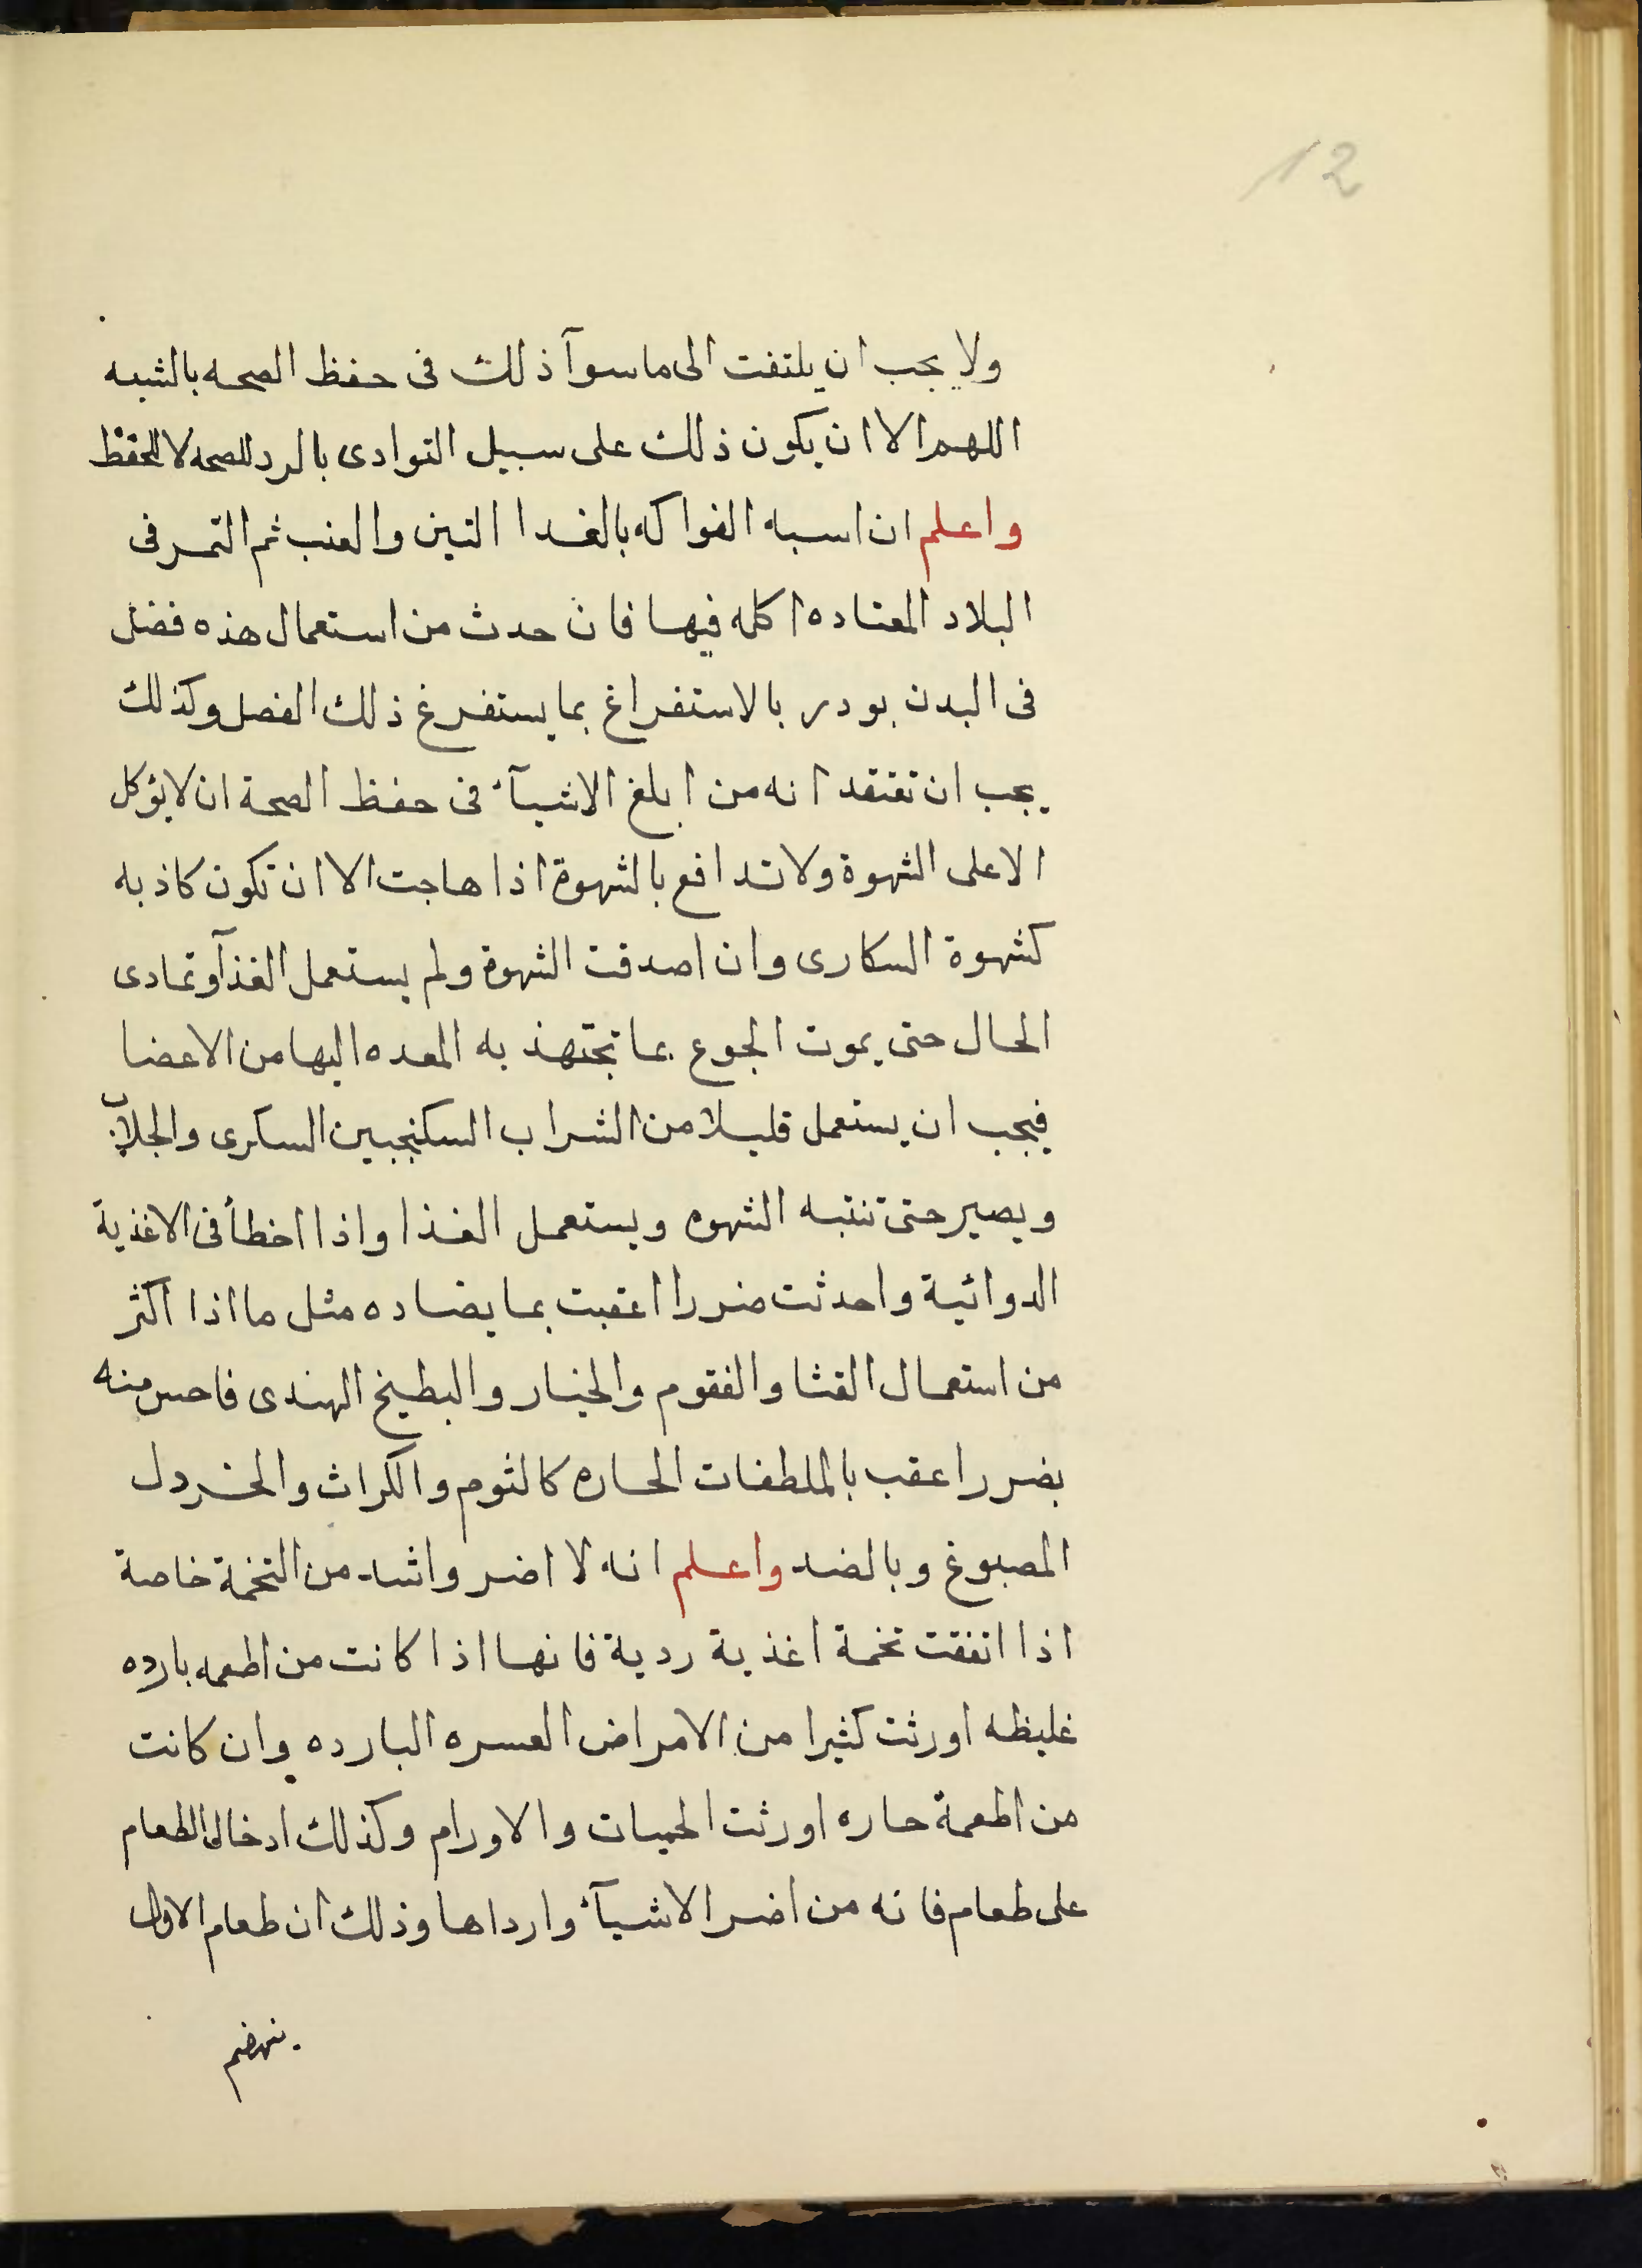 12
ولا يجب ان يلتفت الى ما سوآ ذلك فى حفظ الصحه بالشبه
اللهم الا ان يكون ذلك على سبيل التوادى بالرد للصحه لا للحفظ
واعلم ان اسبه الفواكه بالغدا التين والعنب ثم التمر فى
البلاد المعتاده اكله فيها فان حدث من استعمال هذه فضل
فى البدن بودر بالاستفراغ بما يستفرغ ذلك الفصل وكذلك
يجب ان تفتقد انه من ابلغ الاشيآء فى حفظ الصحة ان لا يؤكل
الا على الشهوة ولا تدافع بالشهوة اذا هاجت الا ان تكون كاذبه
كشهوة السكارى وان اصدقت الشهوة ولم يستعمل الغذآ وتمادى
الحال حتى يموت الجوع عما تجتهذ به المعده اليها من الاعضا
فيجب ان يستعمل قليلا من الشراب السكنجبين السكرى والجلاب
ويصير حتى تنتبه الشهوه ويستعمل الغذا واذا اخطأ فى الاغذية
الدوائية واحدثت ضررا اعقبت بما يضاده مثل ما اذا اكثر
من استعمال القثا والفقوم والخيار والبطيخ الهندى فاحس منه
بضرر اعقب بالملطفات الحاره كالثوم والكراث والخردل
المصبوغ وبالضد واعلم انه لا اضر واشد من التخمة خاصة
اذا اتفقت تخمة اغذية ردية فانها اذا كانت من اطعمه بارده
غليظه اورثت كثيرا من الامراض العسره البارده وان كانت
من اطعمة حاره اورثت الحميات والاورام وكذلك ادخال الطعام
على طعام فانه من اضر الاشيآء وارداها وذلك ان طعام الاول
ينهضم